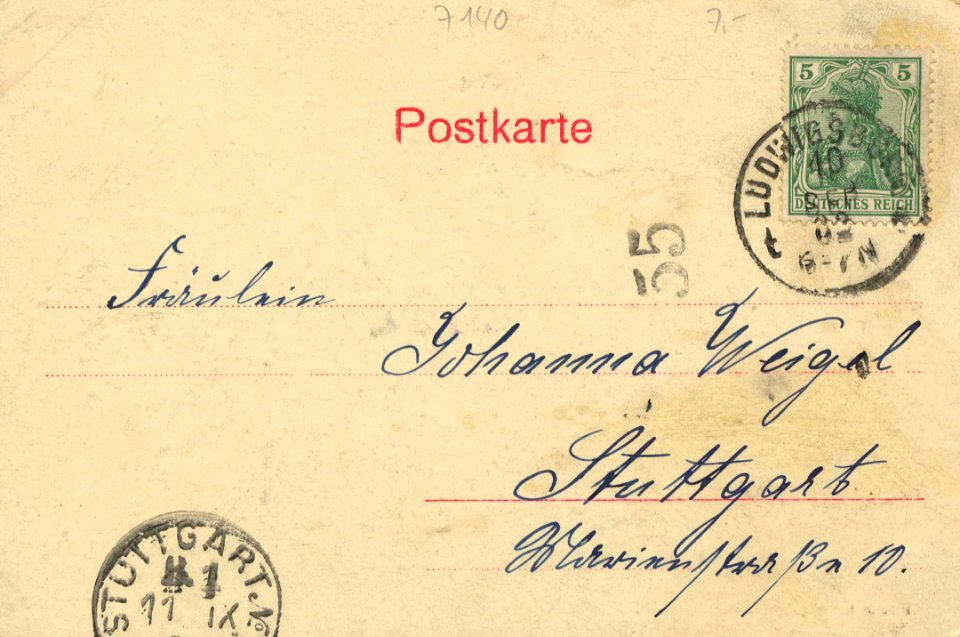 7140 7,-
5 5
Postkarte
DEUTSCHES REICH
LUDWIGSBURG
10
SEP
02
6-7N
55
Fräulein
Johanna Weigel
Stuttgart
Marienstraße 10.
STUTTGART. No
1
11 IX